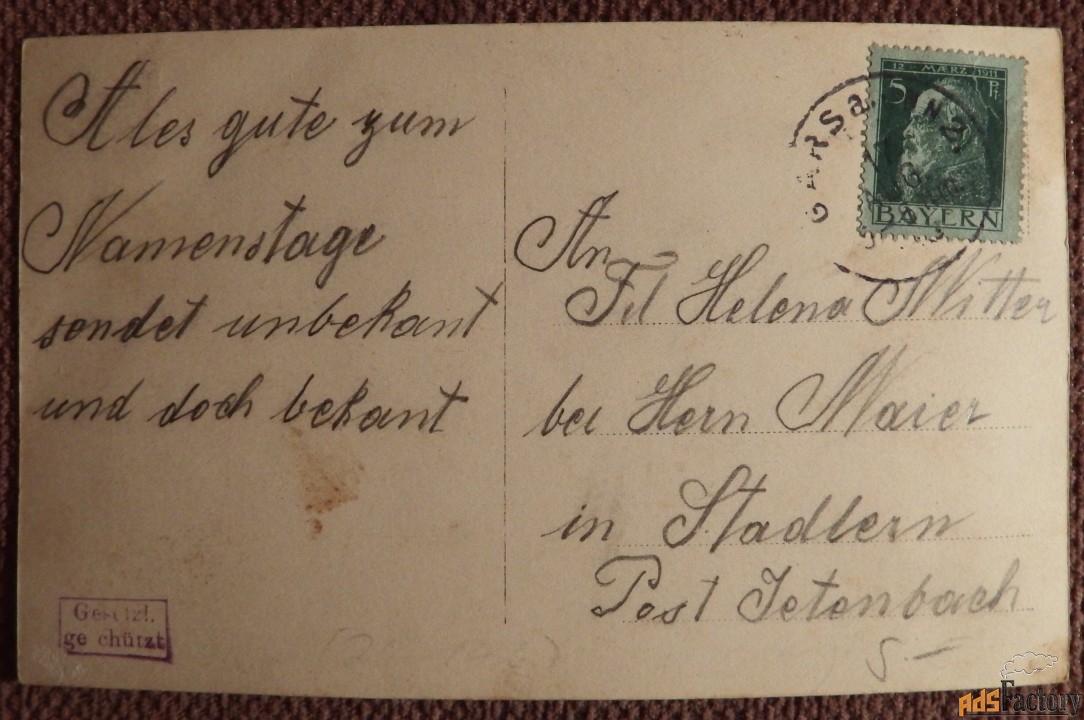 Alles gute zum
Namenstage
sendet unbekant
und doch bekant
Gesetzl.
geschützt
12. MÆRZ 1911
5 Pf
BAYERN
GARS a. INN
An
Frl Helena Mitter
bei Hern Maier
in Stadlern
Post Jetenbach
5.-
AdsFactory